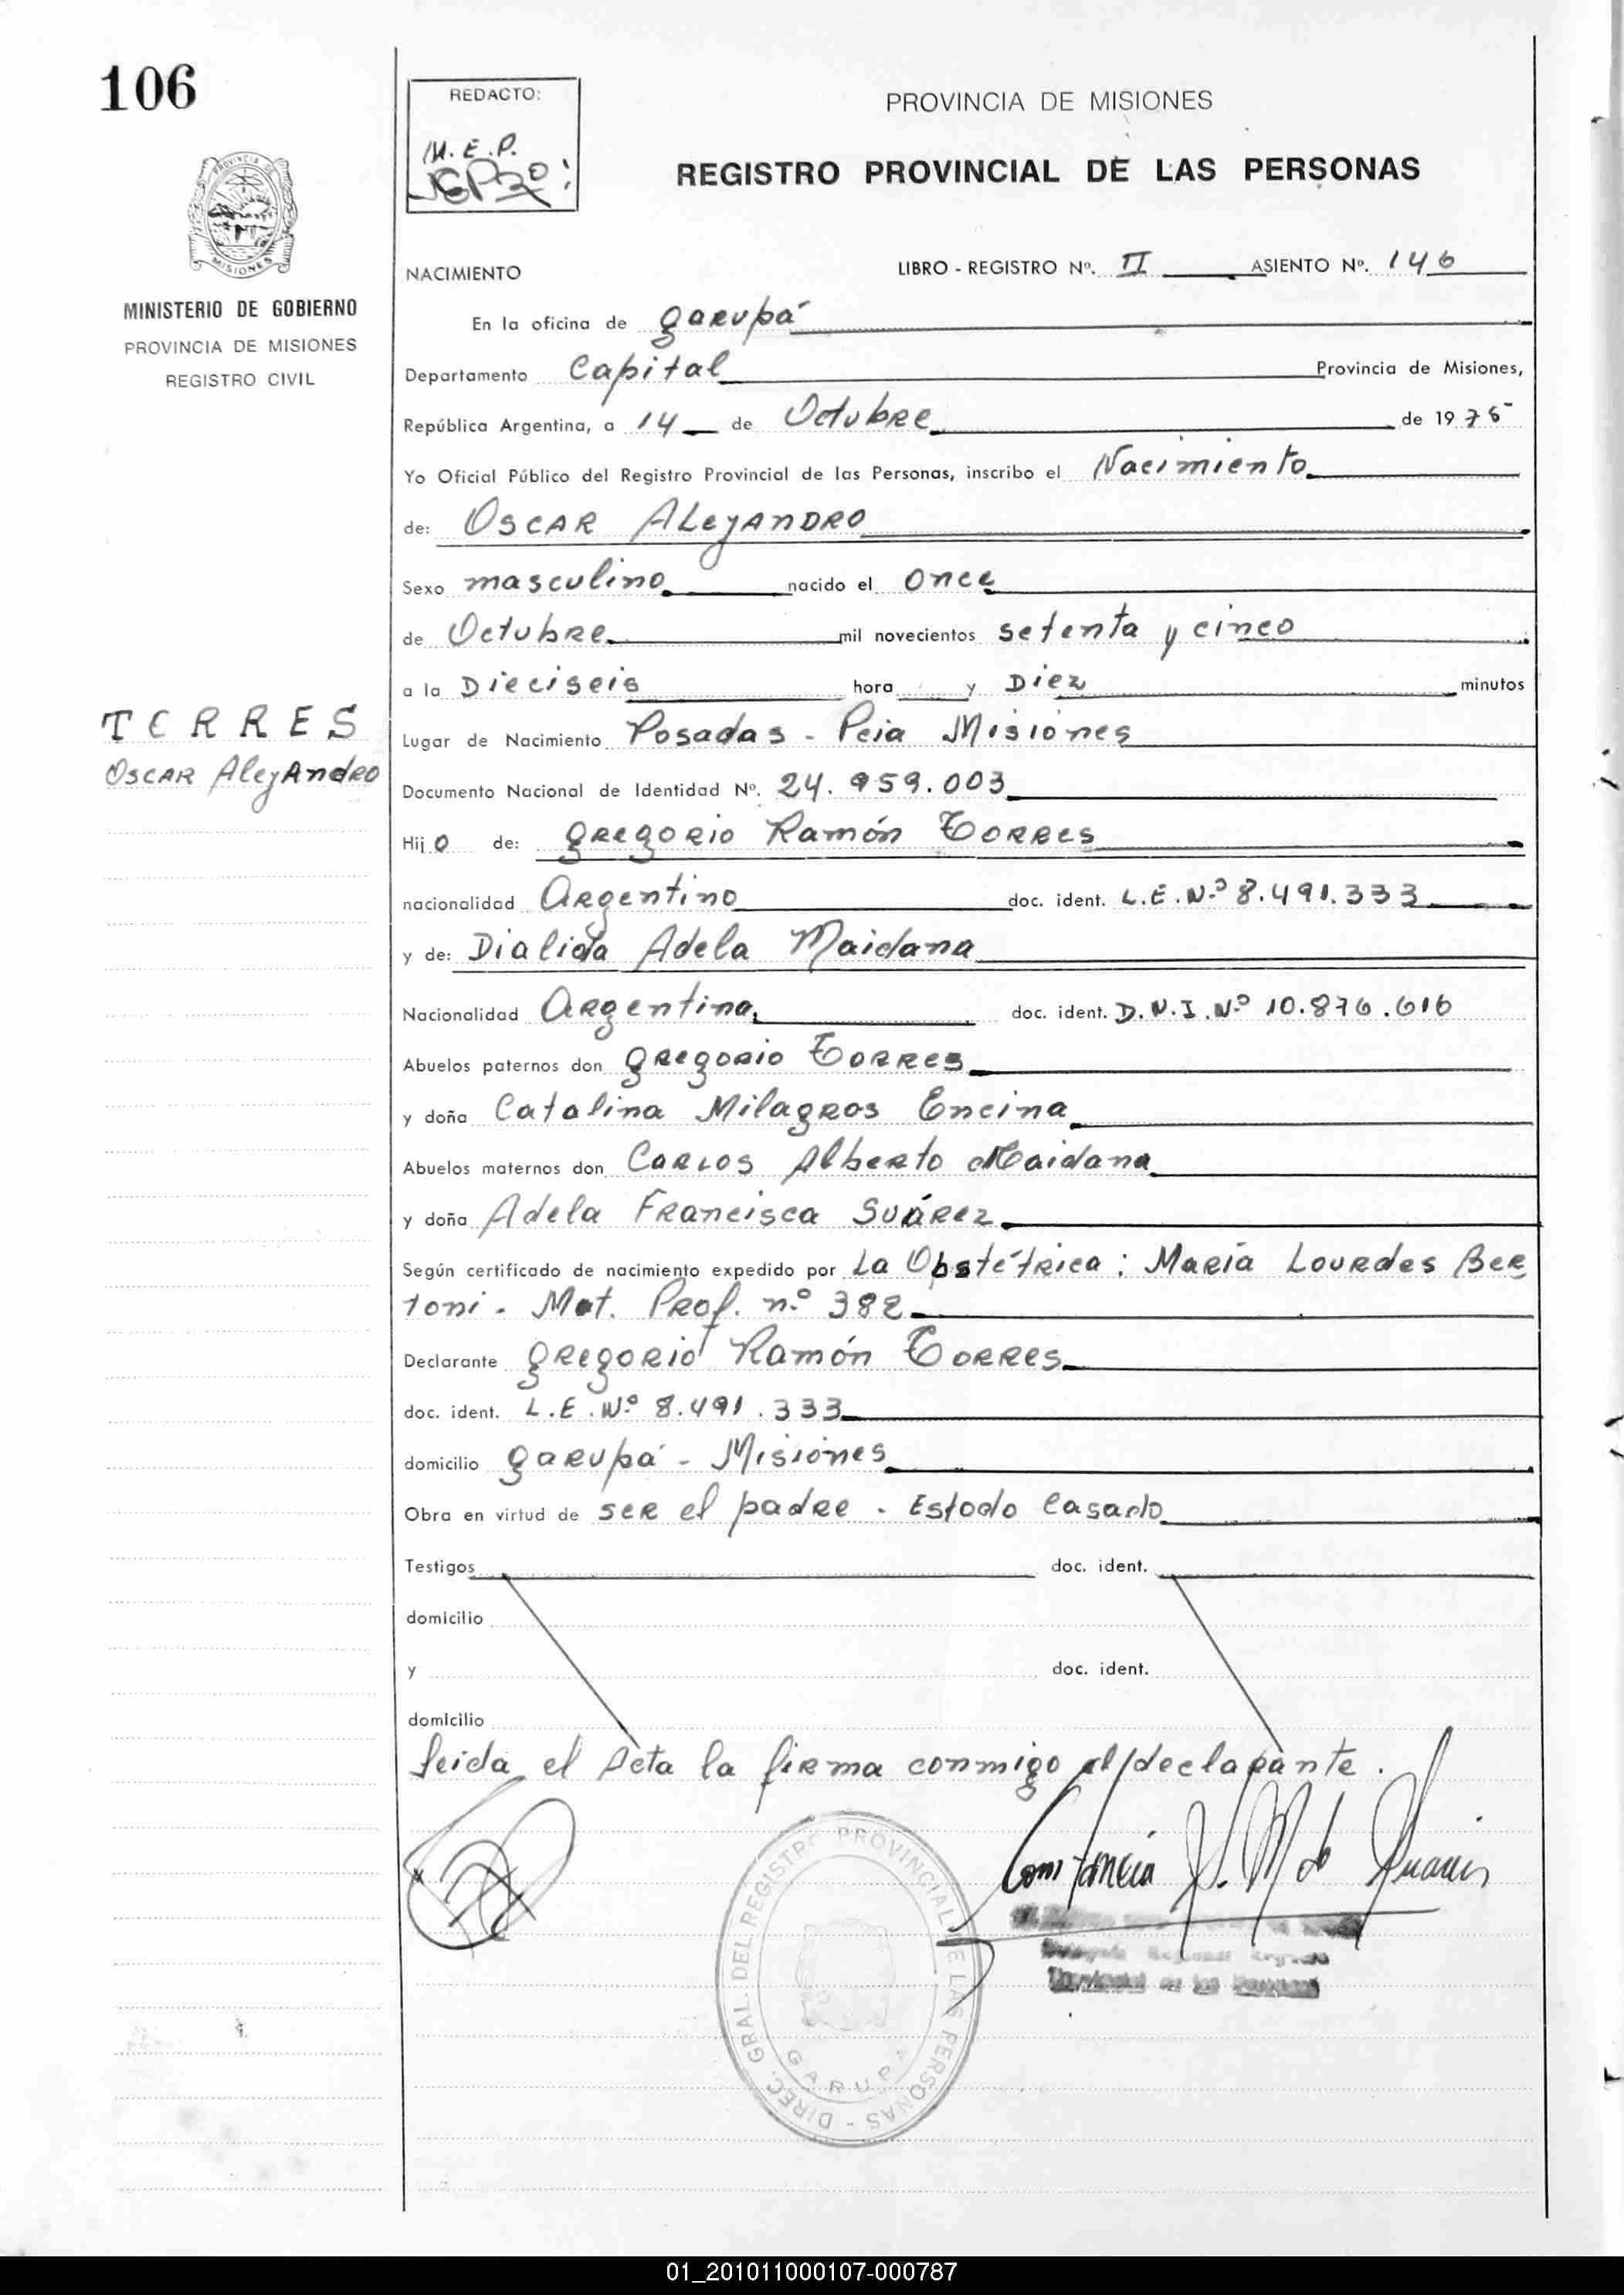 106
REDACTO:
M.E.P.
PROVINCIA DE MISIONES
REGISTRO PROVINCIAL DE LAS PERSONAS
PROVINCIA DE
MISIONES
MINISTERIO DE GOBIERNO
PROVINCIA DE MISIONES
REGISTRO CIVIL
NACIMIENTO LIBRO - REGISTRO Nº. II ASIENTO Nº. 146
En la oficina de Garupá
Departamento Capital Provincia de Misiones,
República Argentina, a 14 de Octubre de 1975
Yo Oficial Público del Registro Provincial de las Personas, inscribo el Nacimiento
de: OSCAR ALejANDRO
Sexo masculino nacido el once
de Octubre mil novecientos setenta y cinco
a la Dieciseis hora y Diez minutos
TORRES
OSCAR AlejAndro
Lugar de Nacimiento Posadas - Pcia Misiones
Documento Nacional de Identidad Nº. 24.959.003
Hijo de: Gregorio Ramón Torres
nacionalidad Argentino doc. ident. L.E.Nº 8.491.333
y de: Dialida Adela Maidana
Nacionalidad Argentina. doc. ident. D.N.I.Nº 10.876.616
Abuelos paternos don Gregorio Torres
y doña Catalina Milagros Encina
Abuelos maternos don Carlos Alberto Maidana
y doña Adela Francisca Suárez
Según certificado de nacimiento expedido por La Obstétrica; María Lourdes Ber
toni. Mat. Prof. n.º 382
Declarante Gregorio Ramón Torres
doc. ident. L.E.Nº 8.491.333
domicilio Garupá - Misiones
Obra en virtud de ser el padre. Estado Casado
Testigos doc. ident.
domicilio
y doc. ident.
domicilio
Leida el Acta la firma conmigo el declarante.
DIREC. GRAL. DEL REGISTRO PROVINCIAL DE LAS PERSONAS -
GARUPA
Constancia
01_201011000107-000787